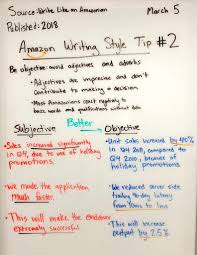 Source: Write Like an Amazonian
March 5
Published: 2018
Amazon Writing Style Tip #2
Be objective: avoid adjectives and adverbs
• Adjectives are imprecise and don't
contribute to making a decision
• Most Amazonians react negatively to
buzz words and qualifications without data
Better
Subjective
Objective
• Sales increased significantly
in Q4, due to use of holiday
promotions.
• Unit sales increased by 40%
in Q4 2011, compared to
Q4 2010, because of
holiday promotions.
• We made the application
much faster.
• We reduced server side
latency from
to 1ms
• This will make the endeavor
extremely successful
• This will increase
output by 2.5%